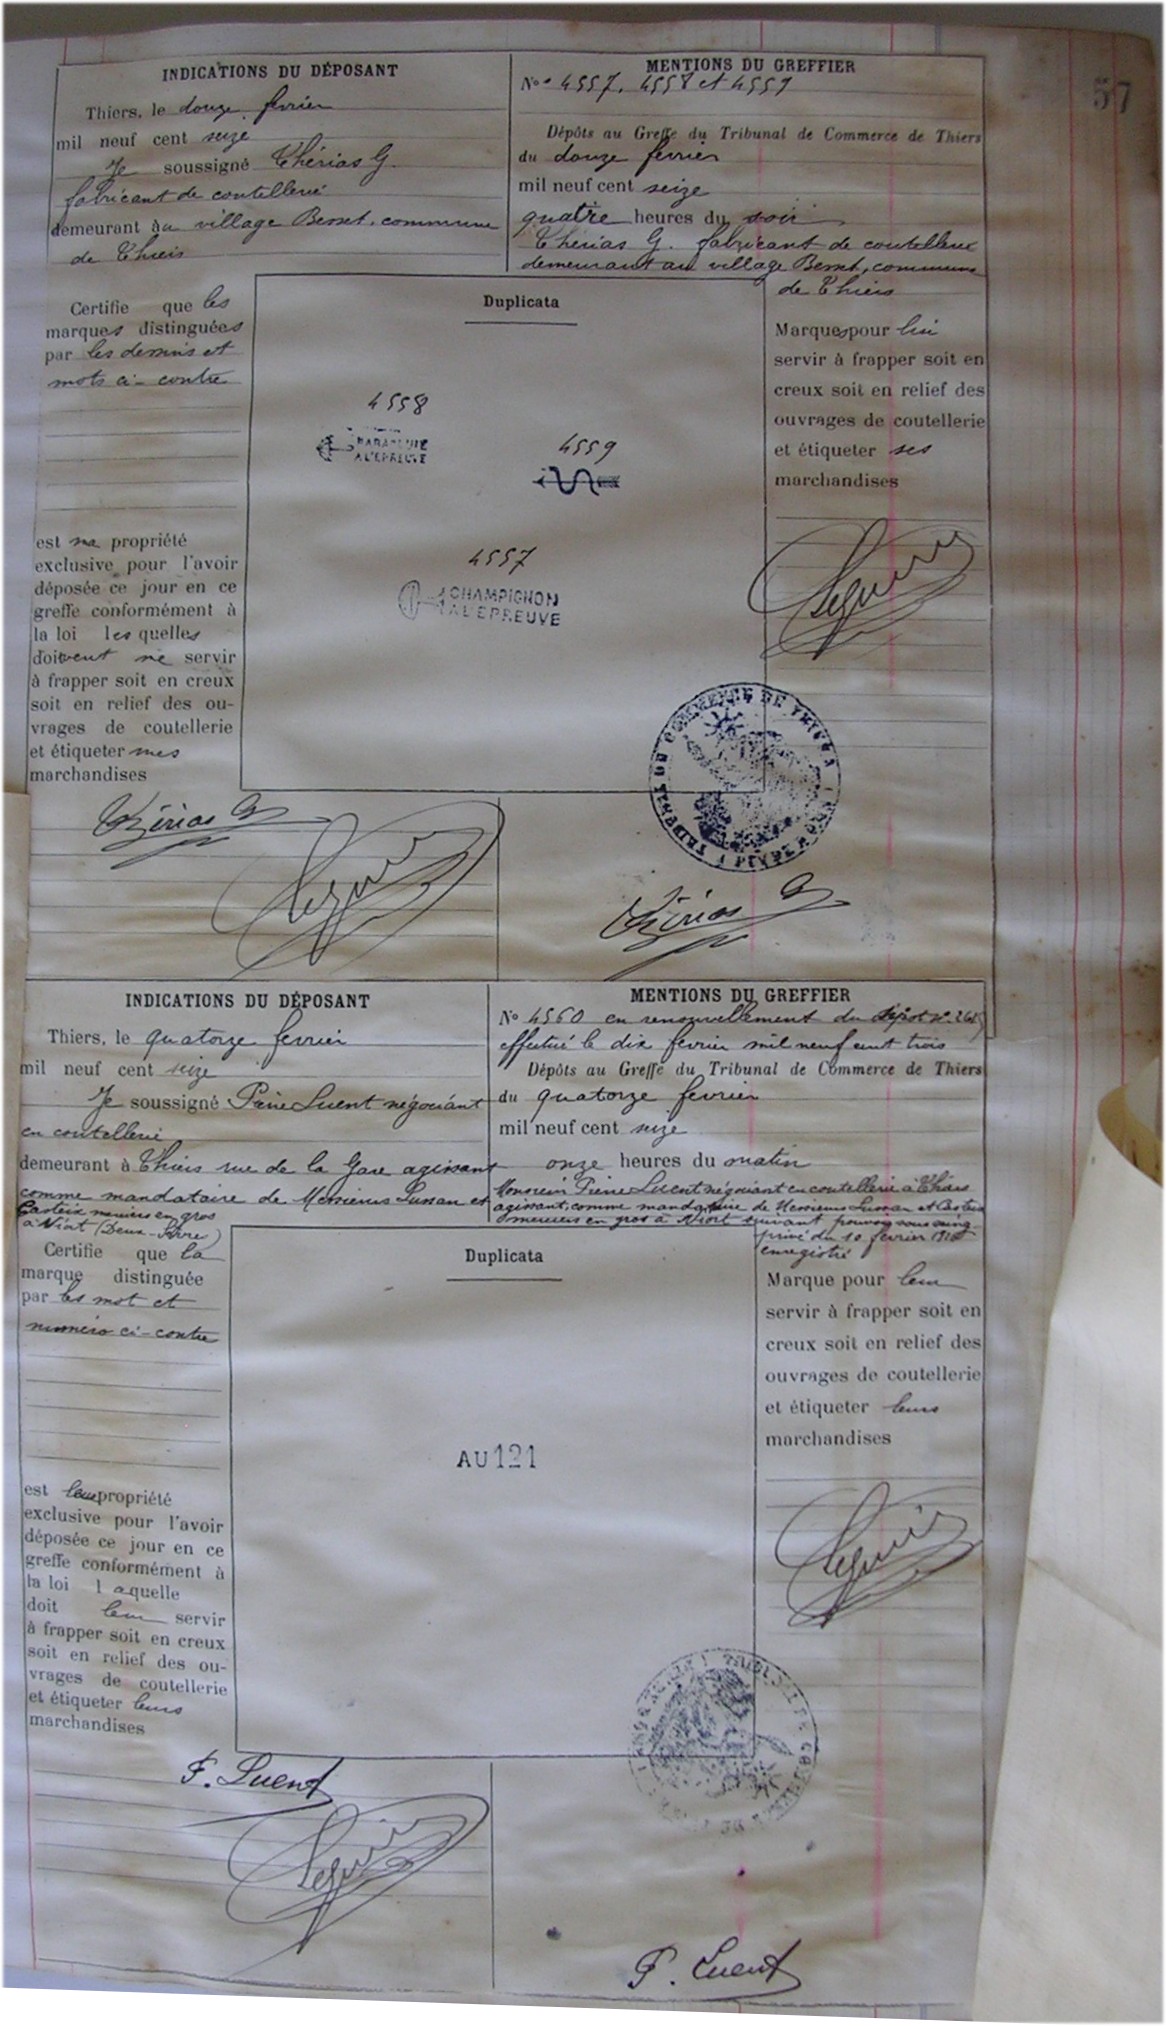 57
INDICATIONS DU DÉPOSANT
Thiers, le douze février
mil neuf cent seize
Je soussigné Thérias G.
fabricant de coutellerie
demeurant au village Besset, commune
de Thiers
MENTIONS DU GREFFIER
Nos 4557, 4558 et 4559
Dépôts au Greffe du Tribunal de Commerce de Thiers
du douze février
mil neuf cent seize
quatre heures du soir
Thérias G. fabricant de coutellerie
demeurant au village Besset, commune
de Thiers
Certifie que les
marques distinguées
par les dessins et
mots ci-contre
est ma propriété
exclusive pour l'avoir
déposée ce jour en ce
greffe conformément à
la loi lesquelles
doivent me servir
à frapper soit en creux
soit en relief des ou-
vrages de coutellerie
et étiqueter mes
marchandises
Duplicata
4558
PARAPLUIE
A L'EPREUVE
4559
4557
CHAMPIGNON
A L'EPREUVE
Marques pour lui
servir à frapper soit en
creux soit en relief des
ouvrages de coutellerie
et étiqueter ses
marchandises
TRIBUNAL DE COMMERCE DE THIERS
Thérias G
Thérias G
INDICATIONS DU DÉPOSANT
Thiers, le quatorze février
mil neuf cent seize
Je soussigné Pierre Luent négociant
en coutellerie
demeurant à Thiers rue de la Gare agissant
comme mandataire de Messieurs Lussan et
Casteix merciers en gros
à Niort (Deux-Sèvres)
MENTIONS DU GREFFIER
No 4560 en renouvellement du dépôt n°
effectué le dix février mil neuf cent trois
Dépôts au Greffe du Tribunal de Commerce de Thiers
du quatorze février
mil neuf cent seize
onze heures du matin
Monsieur Pierre Luent négociant en coutellerie à Thiers
agissant comme mandataire de Messieurs Lussan et Casteix
merciers en gros à Niort suivant pouvoir sous seing
privé du 10 février 1916
enregistré
Certifie que la
marque distinguée
par les mot et
numéro ci-contre
est leur propriété
exclusive pour l'avoir
déposée ce jour en ce
greffe conformément à
la loi laquelle
doit leur servir
à frapper soit en creux
soit en relief des ou-
vrages de coutellerie
et étiqueter leurs
marchandises
Duplicata
AU 121
Marque pour leur
servir à frapper soit en
creux soit en relief des
ouvrages de coutellerie
et étiqueter leurs
marchandises
P. Luent
P. Luent